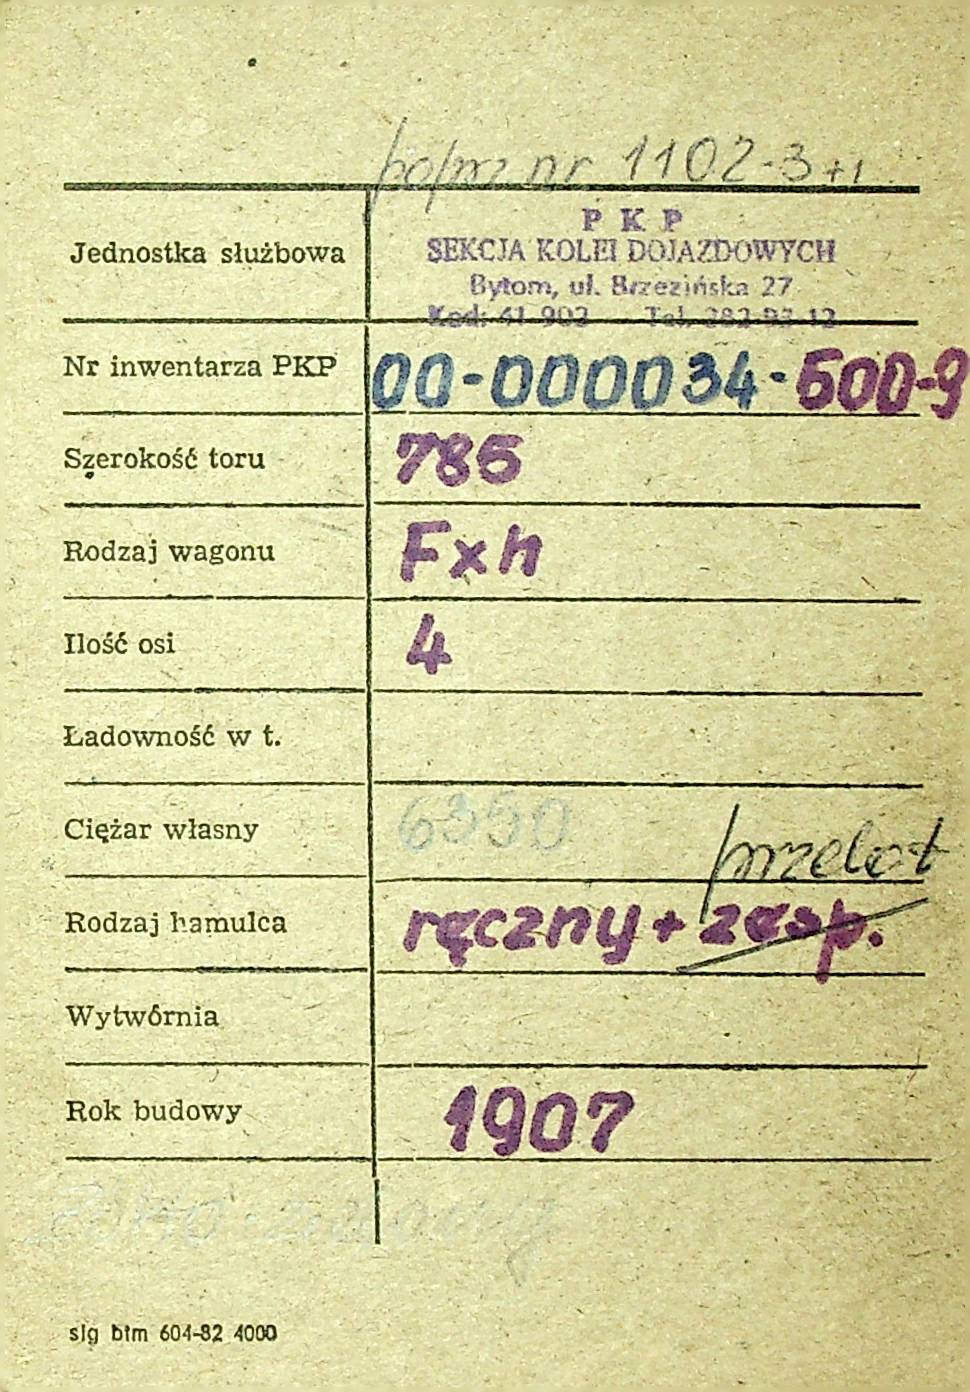 poprz nr 1102-3+1
Jednostka służbowa
P K P
SEKCJA KOLEI DOJAZDOWYCH
Bytom, ul. Brzezińska 27
Kod: 41-902 Tel.
Nr inwentarza PKP 00-000034-600-9
Szerokość toru 785
Rodzaj wagonu Fxh
Ilość osi 4
Ładowność w t.
Ciężar własny 6350
przelot
Rodzaj hamulca ręczny + zesp.
Wytwórnia
Rok budowy 1907
slg btm 604-82 4000